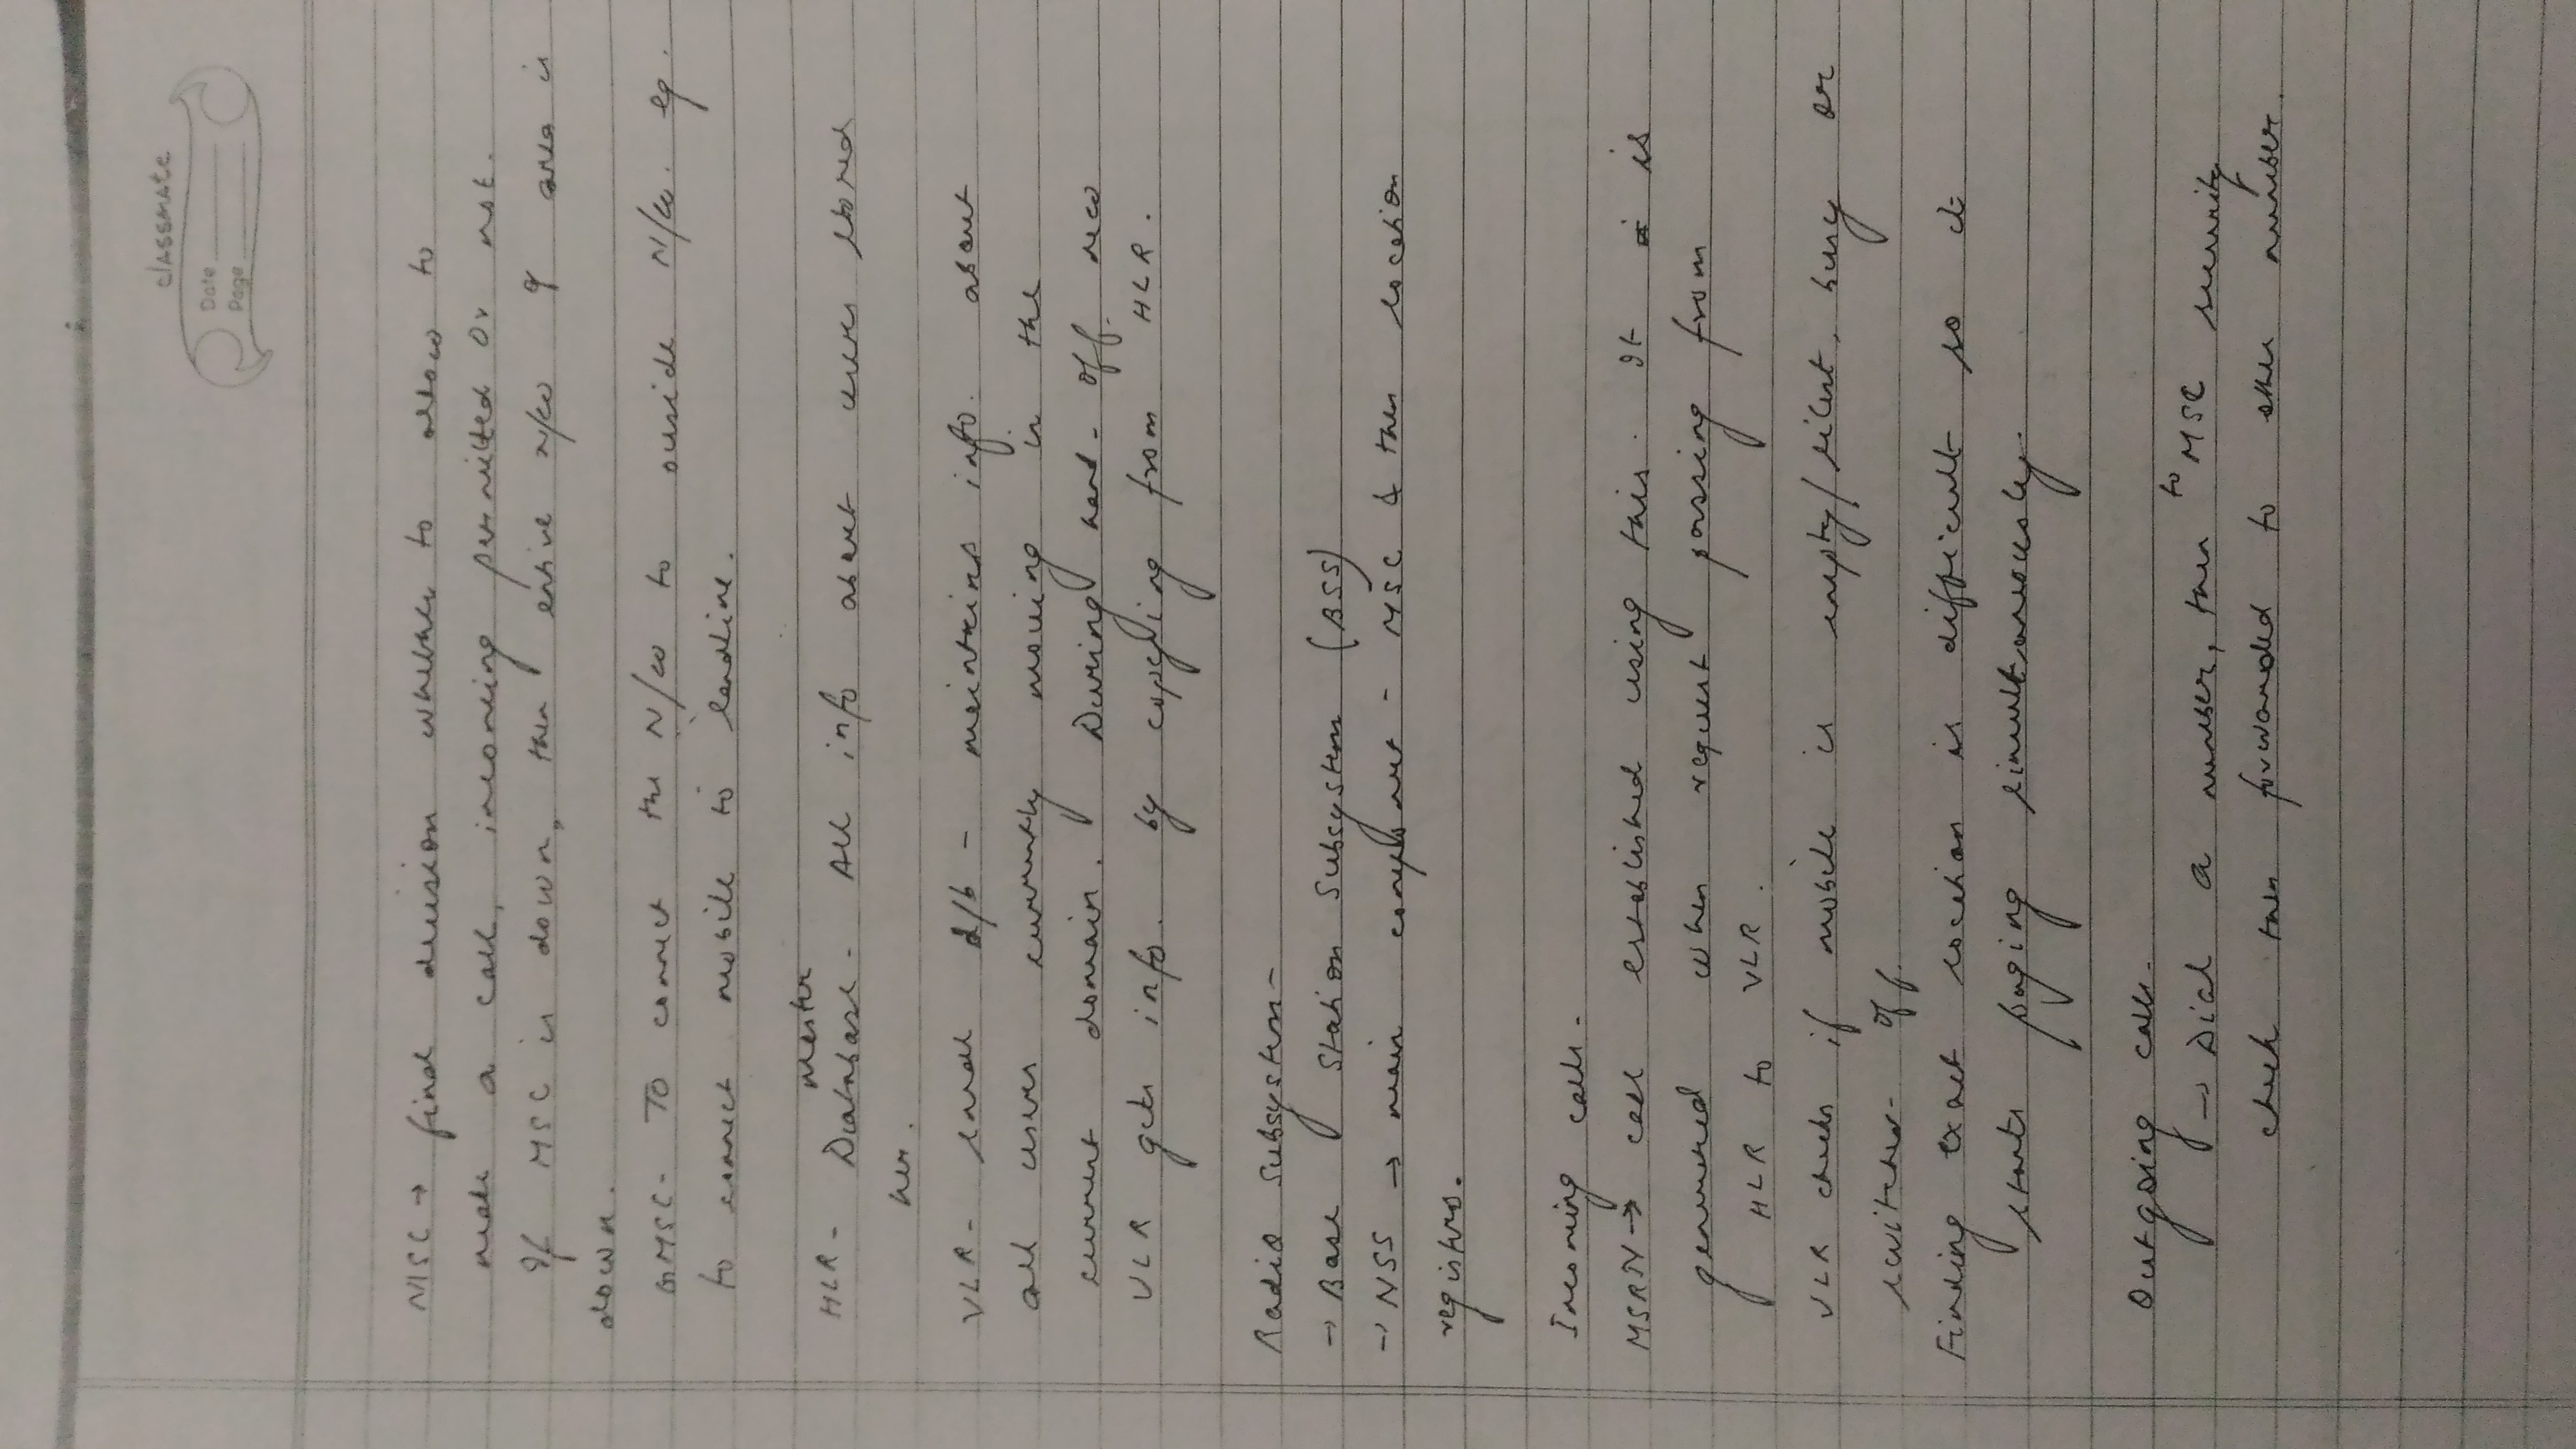 classmate
Date
Page
MSC → final decision whether to allow to
make a call, incoming permitted or not.
If MSC is down, then entire n/w of area is
down.
GMSC - To connect the N/w to ouside N/w. eg.
to connect mobile to landline.
master
HLR - Database - All info about users stored
here.
VLR - small d/b - maintains info. about
all users currently moving in the
current domain. During hand-off new
VLR gets info. by copying from HLR.
Radio Subsystem -
→ Base Station Subsystem (BSS)
→ NSS → main component - MSC & then location
registers.
Incoming calls -
MSRN → call established using this. It is
generated when request passing from
HLR to VLR.
VLR checks if mobile is empty/silent, busy or
switched-off.
Finding exact location is difficult so it
starts paging simultaneously.
Outgoing calls -
→ Dial a number, then to MSC security
check then forwarded to other number.